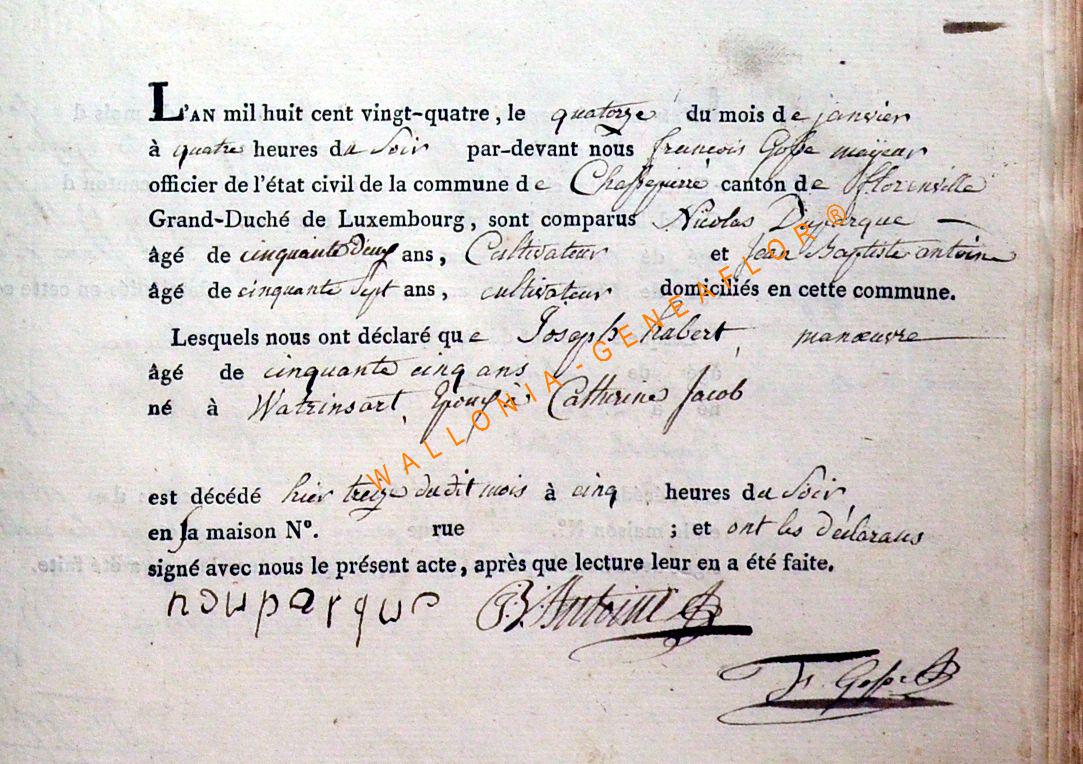 L'AN mil huit cent vingt-quatre, le quatorze du mois de janvier
à quatre heures du Soir par-devant nous françois Gosse maÿeur
officier de l'état civil de la commune de Chassepierre canton de florenville
Grand-Duché de Luxembourg, sont comparus Nicolas Duparque —
âgé de cinquante deux ans, Cultivateur et Jean Baptiste antoine
âgé de cinquante Sept ans, cultivateur domiciliés en cette commune.
Lesquels nous ont déclaré que Joseph habert, manœuvre
âgé de cinquante cinq ans
né à Watrinsart, Epoux à Catherine Jacob
est décédé hier treize du dit mois à cinq heures du Soir
en sa maison N°. rue ; et ont les déclarans
signé avec nous le présent acte, après que lecture leur en a été faite.
nduparque J.B. Antoine
fs. Gosse
WALLONIA-GENEAFLOR ®